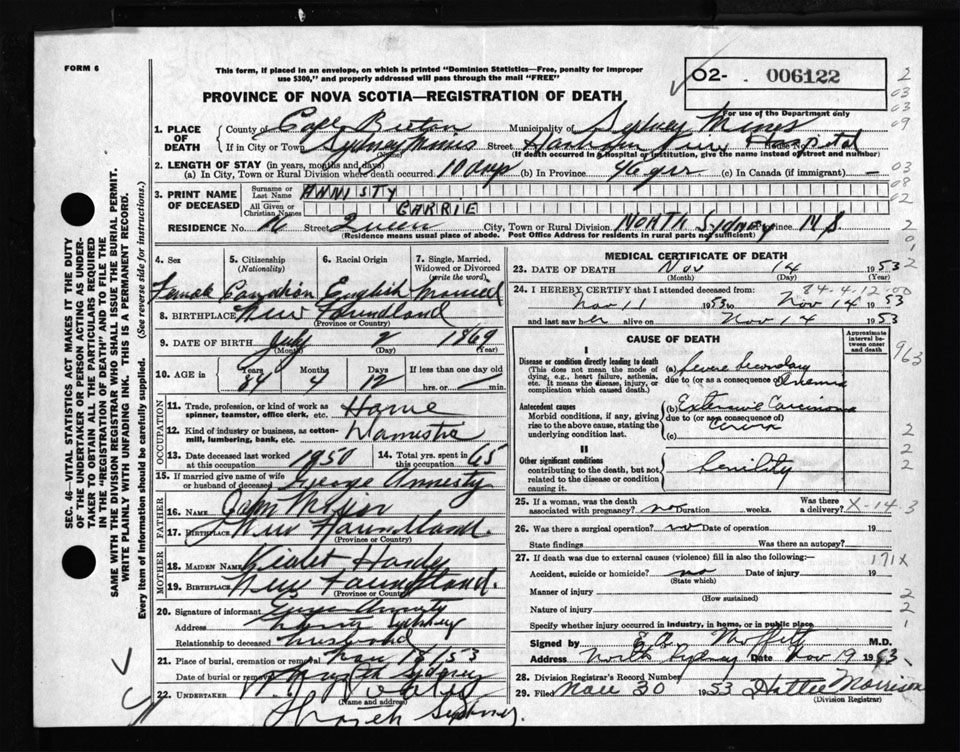 FORM 6
This form, if placed in an envelope, on which is printed "Dominion Statistics—Free, penalty for improper
use $300," and properly addressed will pass through the mail "FREE"
O2- 006122
PROVINCE OF NOVA SCOTIA—REGISTRATION OF DEATH
For use of the Department only
1. PLACE OF DEATH
County of Cape Breton Municipality of Sydney Mines
If in City or Town Sydney Mines Street Harbour View Hospital
(Name) (If death occurred in a hospital or institution, give the name instead of street and number)
2. LENGTH OF STAY (in years, months and days)
(a) In City, Town or Rural Division where death occurred 10 days (b) In Province 46 yrs (c) In Canada (if immigrant) —
3. PRINT NAME OF DECEASED
Surname or Last Name ANNISTY
All Given or Christian Names CARRIE
RESIDENCE No. Street Queen City, Town or Rural Division NORTH SYDNEY Province N S.
(Residence means usual place of abode. Post Office Address for residents in rural parts not sufficient)
4. Sex
5. Citizenship (Nationality)
6. Racial Origin
7. Single, Married, Widowed or Divorced (write the word)
Female Canadian English Married
8. BIRTHPLACE New Foundland
(Province or Country)
9. DATE OF BIRTH July 2 1869
(Month) (Day) (Year)
10. AGE in Years Months Days If less than one day old
84 4 12 hrs. or — min.
OCCUPATION
11. Trade, profession, or kind of work as spinner, teamster, office clerk, etc. Home
12. Kind of industry or business, as cotton-mill, lumbering, bank, etc. Domestic
13. Date deceased last worked at this occupation 1950 14. Total yrs. spent in this occupation 65
15. If married give name of wife or husband of deceased George Annesty
FATHER
16. NAME John
17. BIRTHPLACE New Foundland
(Province or Country)
MOTHER
18. MAIDEN NAME Violet
19. BIRTHPLACE New Foundland.
(Province or Country)
20. Signature of informant Annesty
Address Sydney
Relationship to deceased husband
21. Place of burial, cremation or removal Nov 18 153
Date of burial or removal North Sydney
22. UNDERTAKER
(Name and address)
Sydney.
MEDICAL CERTIFICATE OF DEATH
23. DATE OF DEATH Nov 14 1953
(Month) (Day) (Year)
84. 4. 12. 00
24. I HEREBY CERTIFY that I attended deceased from:
Nov 11 1953 to Nov 14 1953
and last saw her alive on Nov 14 1953
CAUSE OF DEATH
Approximate interval between onset and death
I
Disease or condition directly leading to death
(This does not mean the mode of dying, e.g., heart failure, asthenia, etc. It means the disease, injury, or complication which caused death.)
(a) Severe Secondary
due to (or as a consequence of) Anemia
Antecedent causes
Morbid conditions, if any, giving rise to the above cause, stating the underlying condition last.
(b) Extensive Carcinoma
due to (or as a consequence of)
(c) Cervix
II
Other significant conditions
contributing to the death, but not related to the disease or condition causing it.
Senility
25. If a woman, was the death associated with pregnancy? no Duration weeks. Was there a delivery?
26. Was there a surgical operation? no Date of operation 19
State findings Was there an autopsy?
27. If death was due to external causes (violence) fill in also the following:—
171X
Accident, suicide or homicide? no Date of injury 19
(State which)
Manner of injury
(How sustained)
Nature of injury
Specify whether injury occurred in industry, in home, or in public place
Signed by Moffett M.D.
Address North Sydney Date Nov 19 1953.
28. Division Registrar's Record Number
29. Filed Nov 30 1953 Hattie Morrison
(Division Registrar)
SEC. 46—VITAL STATISTICS ACT MAKES IT THE DUTY
OF THE UNDERTAKER OR PERSON ACTING AS UNDER-
TAKER TO OBTAIN ALL THE PARTICULARS REQUIRED
IN THE "REGISTRATION OF DEATH" AND TO FILE THE
SAME WITH THE DIVISION REGISTRAR WHO SHALL ISSUE THE BURIAL PERMIT.
WRITE PLAINLY WITH UNFADING INK. THIS IS A PERMANENT RECORD.
Every item of information should be carefully supplied. (See reverse side for instructions.)